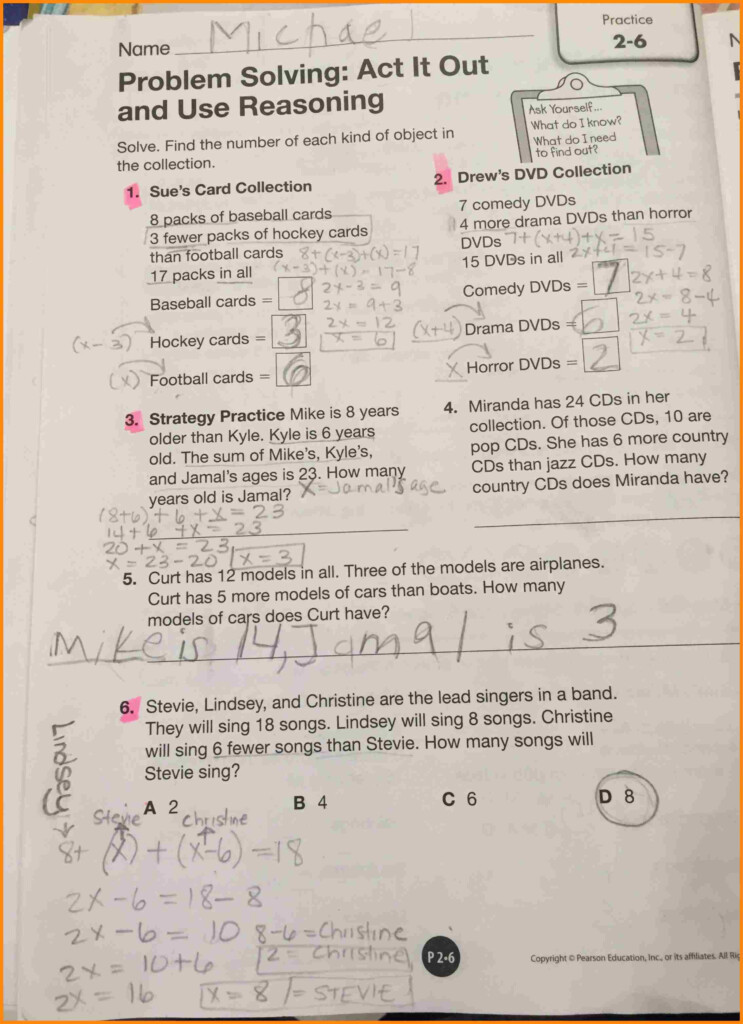 Practice
2-6
Name Michael
Problem Solving: Act It Out
and Use Reasoning
Ask Yourself...
What do I know?
What do I need
to find out?
Solve. Find the number of each kind of object in
the collection.
1. Sue's Card Collection
8 packs of baseball cards
3 fewer packs of hockey cards
than football cards 8+(x-3)+(x)=17
17 packs in all (x-3)+(x) = 17-8
Baseball cards = 8 2x-3 = 9
2x = 9+3
(x-3) Hockey cards = 3 2x = 12
x = 6
(x) Football cards = 6
2. Drew's DVD Collection
7 comedy DVDs
4 more drama DVDs than horror
DVDs 7+(x+4)+x = 15
15 DVDs in all 2x+4 = 15-7
Comedy DVDs = 7 2x+4=8
2x = 8-4
(x+4) Drama DVDs = 6 2x = 4
x = 2
x Horror DVDs = 2
3. Strategy Practice Mike is 8 years
older than Kyle. Kyle is 6 years
old. The sum of Mike's, Kyle's,
and Jamal's ages is 23. How many
years old is Jamal? X=Jamal's age
(8+6) + 6 + x = 23
14+6 +x = 23
20 +x = 23
x = 23-20 x = 3
4. Miranda has 24 CDs in her
collection. Of those CDs, 10 are
pop CDs. She has 6 more country
CDs than jazz CDs. How many
country CDs does Miranda have?
5. Curt has 12 models in all. Three of the models are airplanes.
Curt has 5 more models of cars than boats. How many
models of cars does Curt have?
Mike is 14, Jamal is 3
6. Stevie, Lindsey, and Christine are the lead singers in a band.
They will sing 18 songs. Lindsey will sing 8 songs. Christine
will sing 6 fewer songs than Stevie. How many songs will
Stevie sing?
A 2 B 4 C 6 D 8
Lindsey
Stevie Christine
8+ (x) + (x-6) = 18
2x-6 = 18-8
2x-6 = 10 8-6 = Christine
2x = 10+6 2 = Christine
2x = 16 x = 8 = STEVIE
P 2•6
Copyright © Pearson Education, Inc., or its affiliates. All